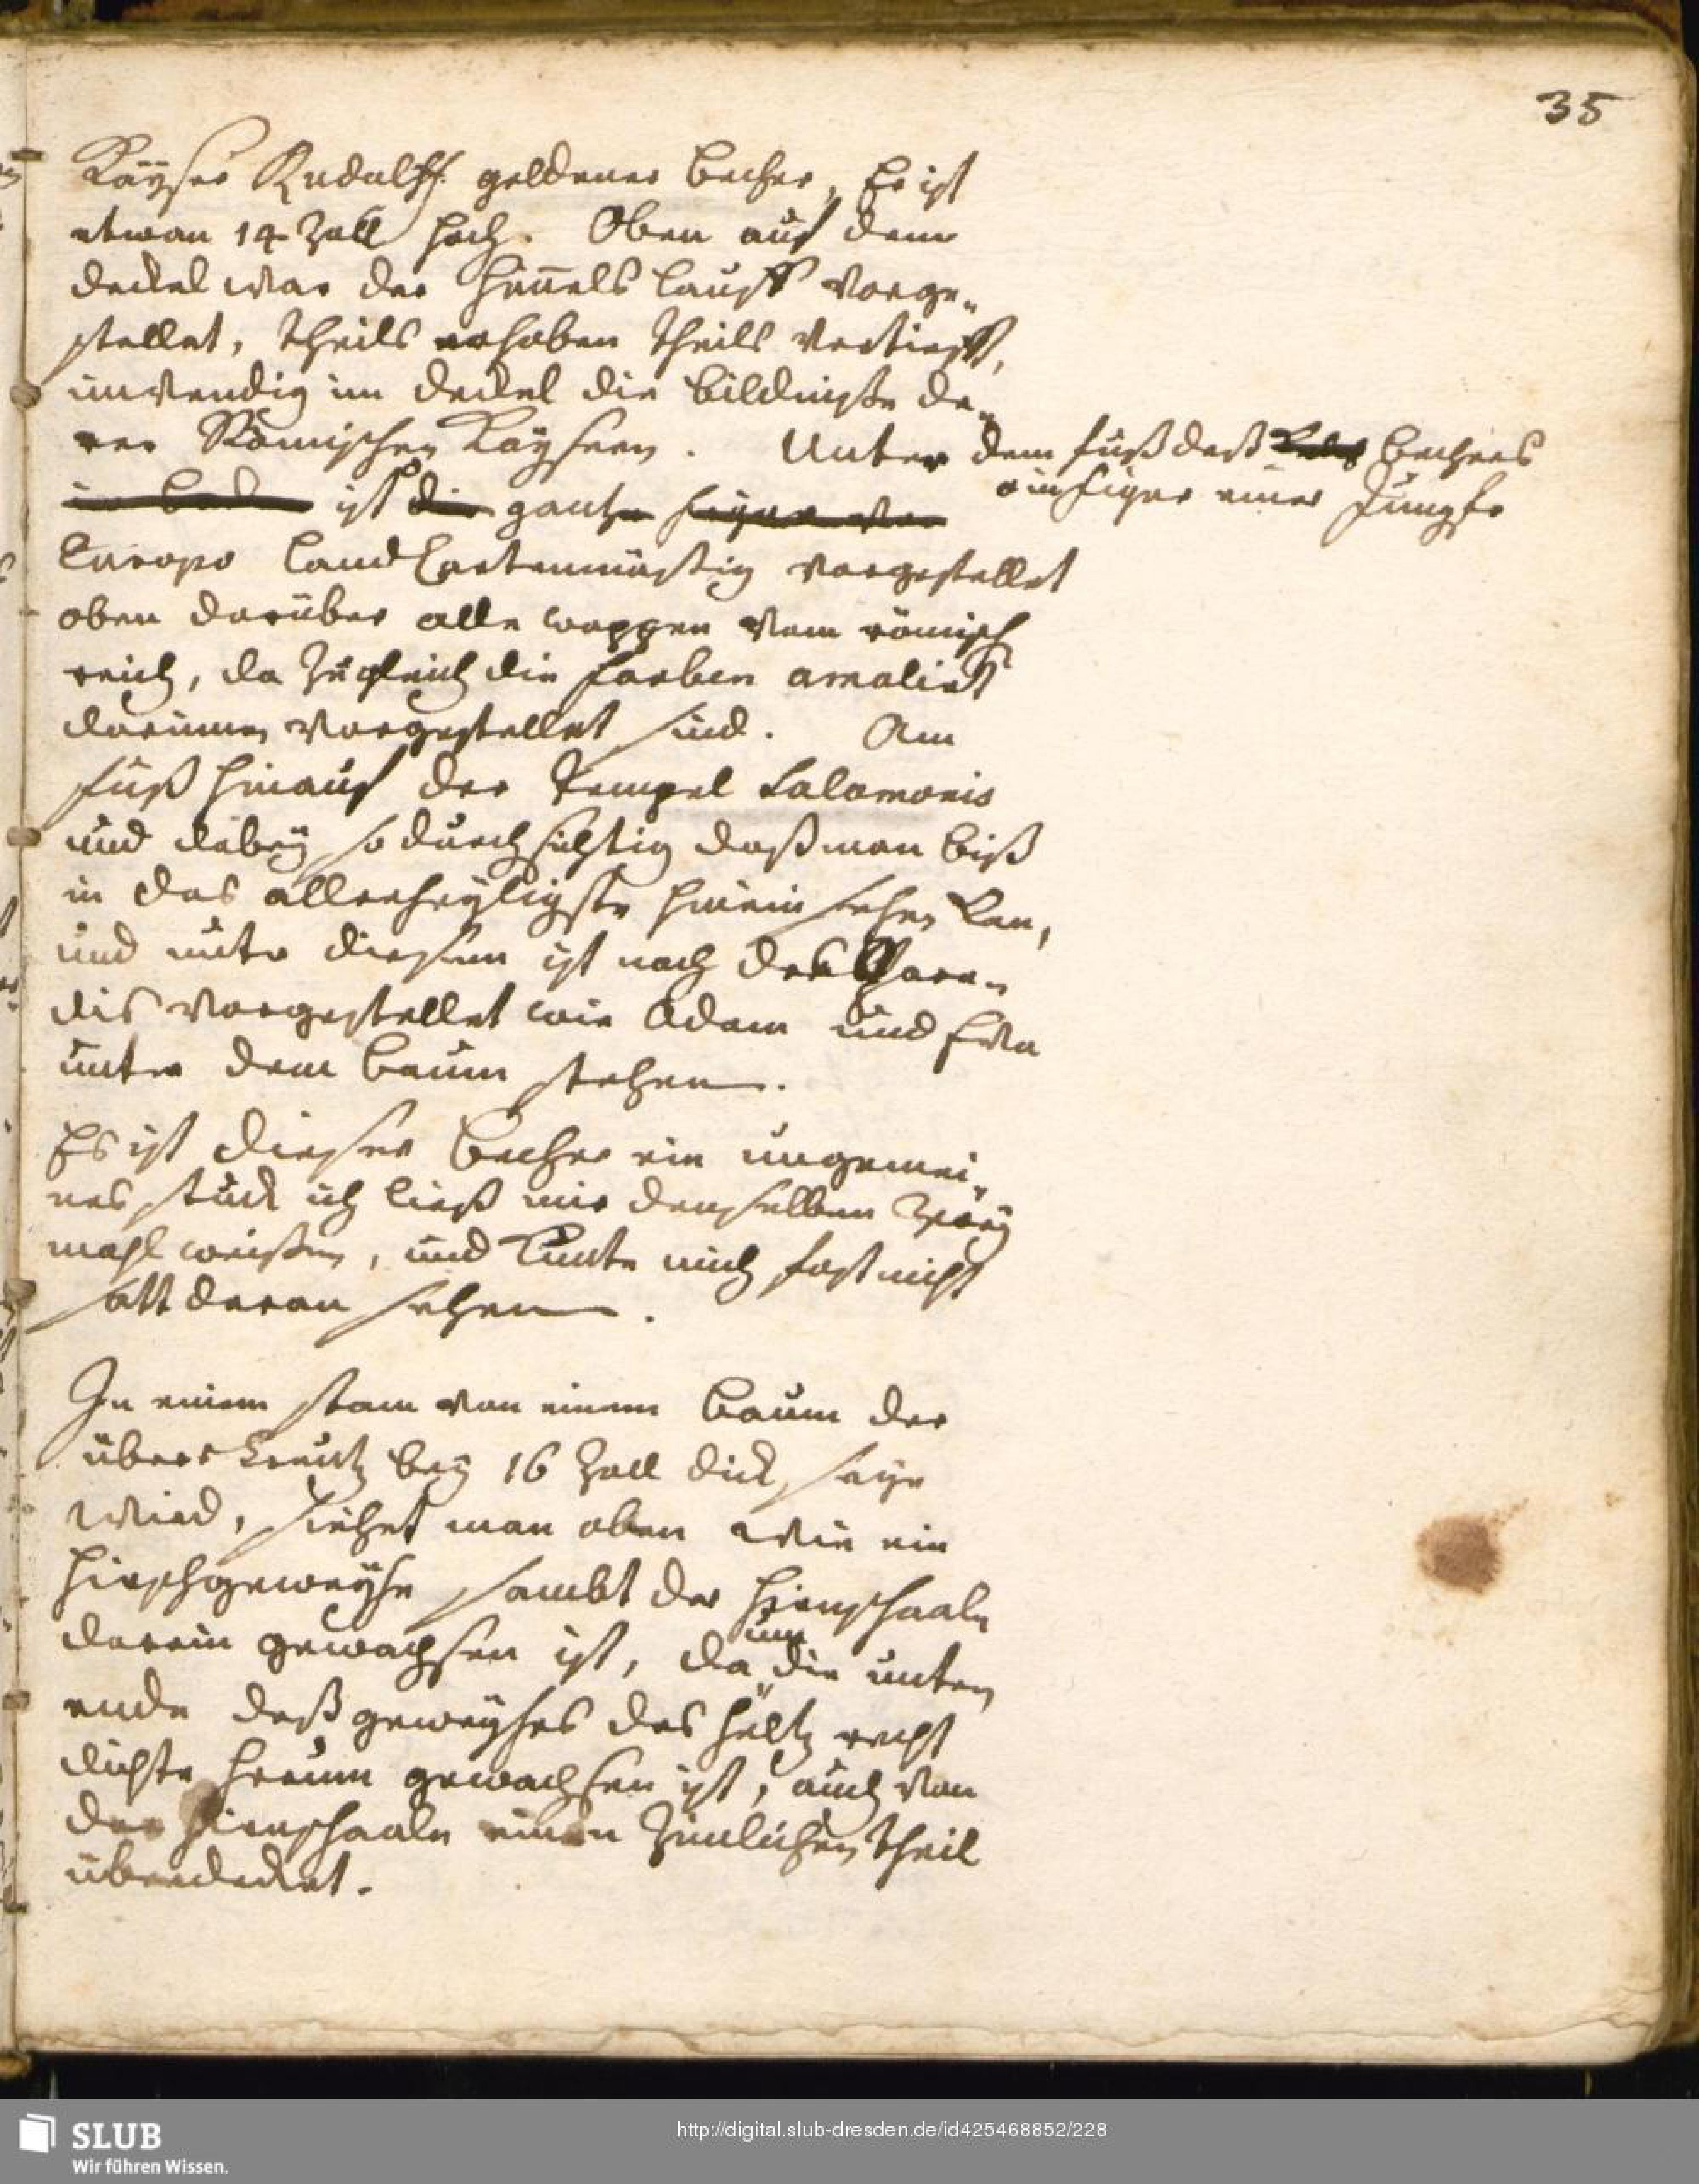 35
Käyser Rudolff. goldener becher, Er ist
etwan 14 Zoll hoch. Oben auf dem
deckel war der Him̅els lauff vorge„
stellet, theils erhoben theils vertiefft,
inwendig im deckel die bildniße de„
rer Römischen Käysern. Unter dem fuß deß bechers
in ist die gantze figur von
ein figur einer Jungfr
Europa landCartenmäßig vorgestellet
oben darüber alle wappen vom römisch
reich, da zugleich die farben amalirt
darinnen vorgestellet sind. Am
fuß hinauf der Tempel Salomonis
und dabey so durchsichtig daß man biß
in das allerheyligste hinein sehen kan,
und unter diesem ist noch das Para„
dis vorgestellet wie Adam und Eva
unter dem baum stehen.
Es ist dieser becher ein ungemei„
nes stück ich ließ mir denselben zwey
mahl weißen, und kunte mich fast nicht
satt daran sehen.
In einem stam von einem baum der
übers Creutz bey 16 Zoll dick seyn
wird, siehet man oben wie ein
Hirschgeweyhe sambt der Hirnschaale
darein gewachsen ist, da um die unten
ende deß geweyhes das holtz recht
dichte herum gewachsen ist, auch von
der Hirnschaale einen zimlichen theil
überdecket.
SLUB
Wir führen Wissen.
http://digital.slub-dresden.de/id425468852/228